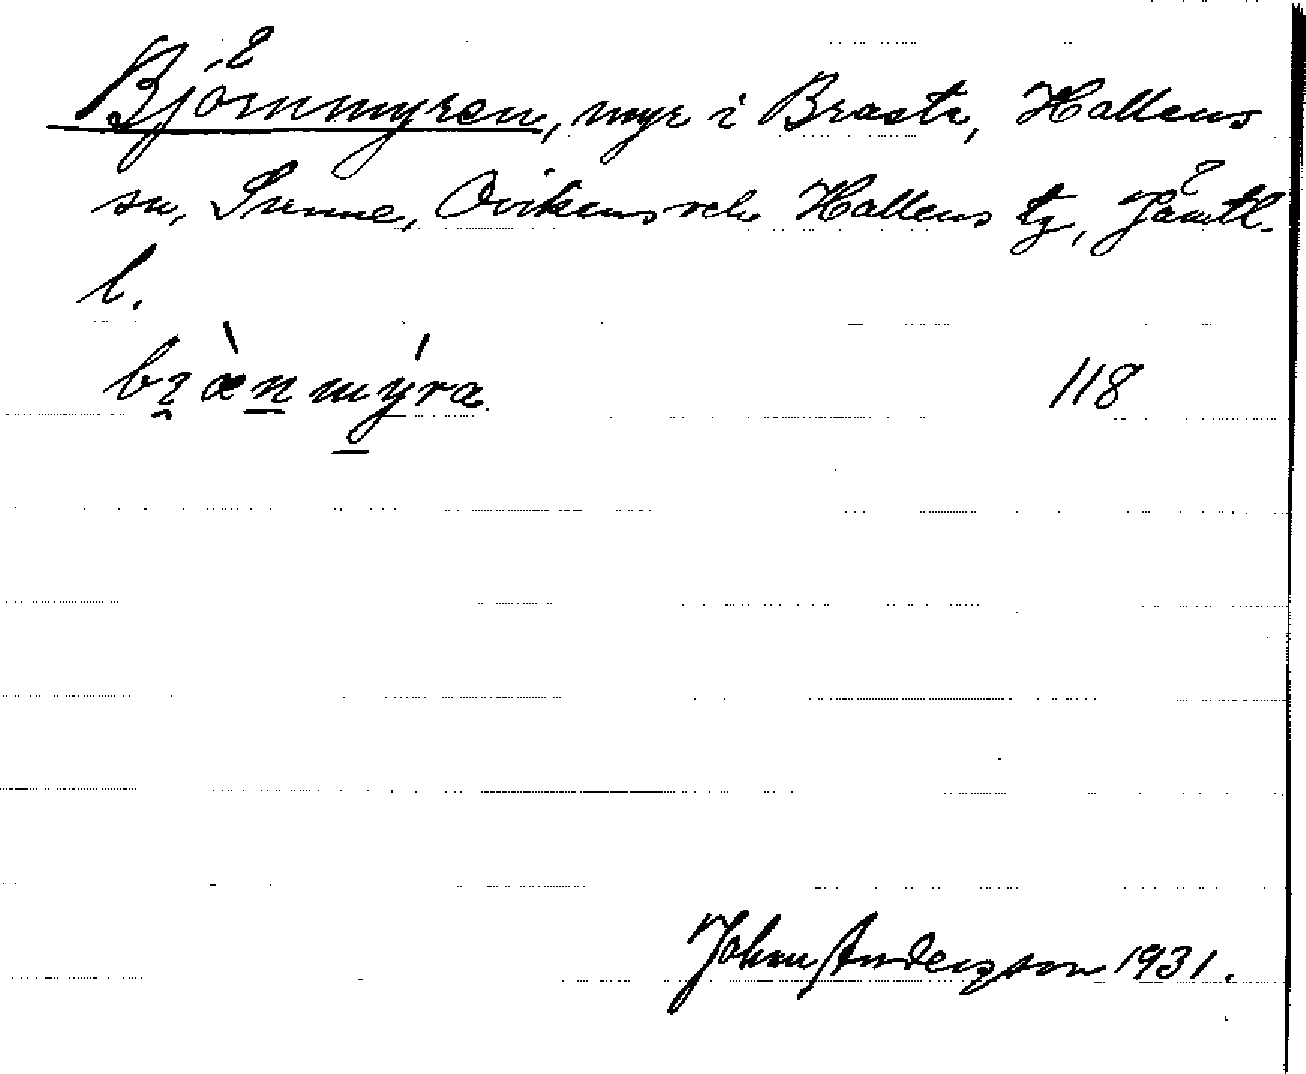 Björnmyren, myr i Braste, Hallens
sn, Sunne, Ovikens och Hallens tg, Jämtl.
l.
118
John Anderzson 1931.